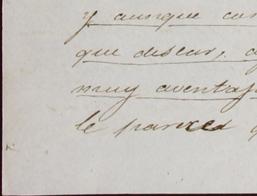 y aunque
que desear,
muy aventaj
le parece